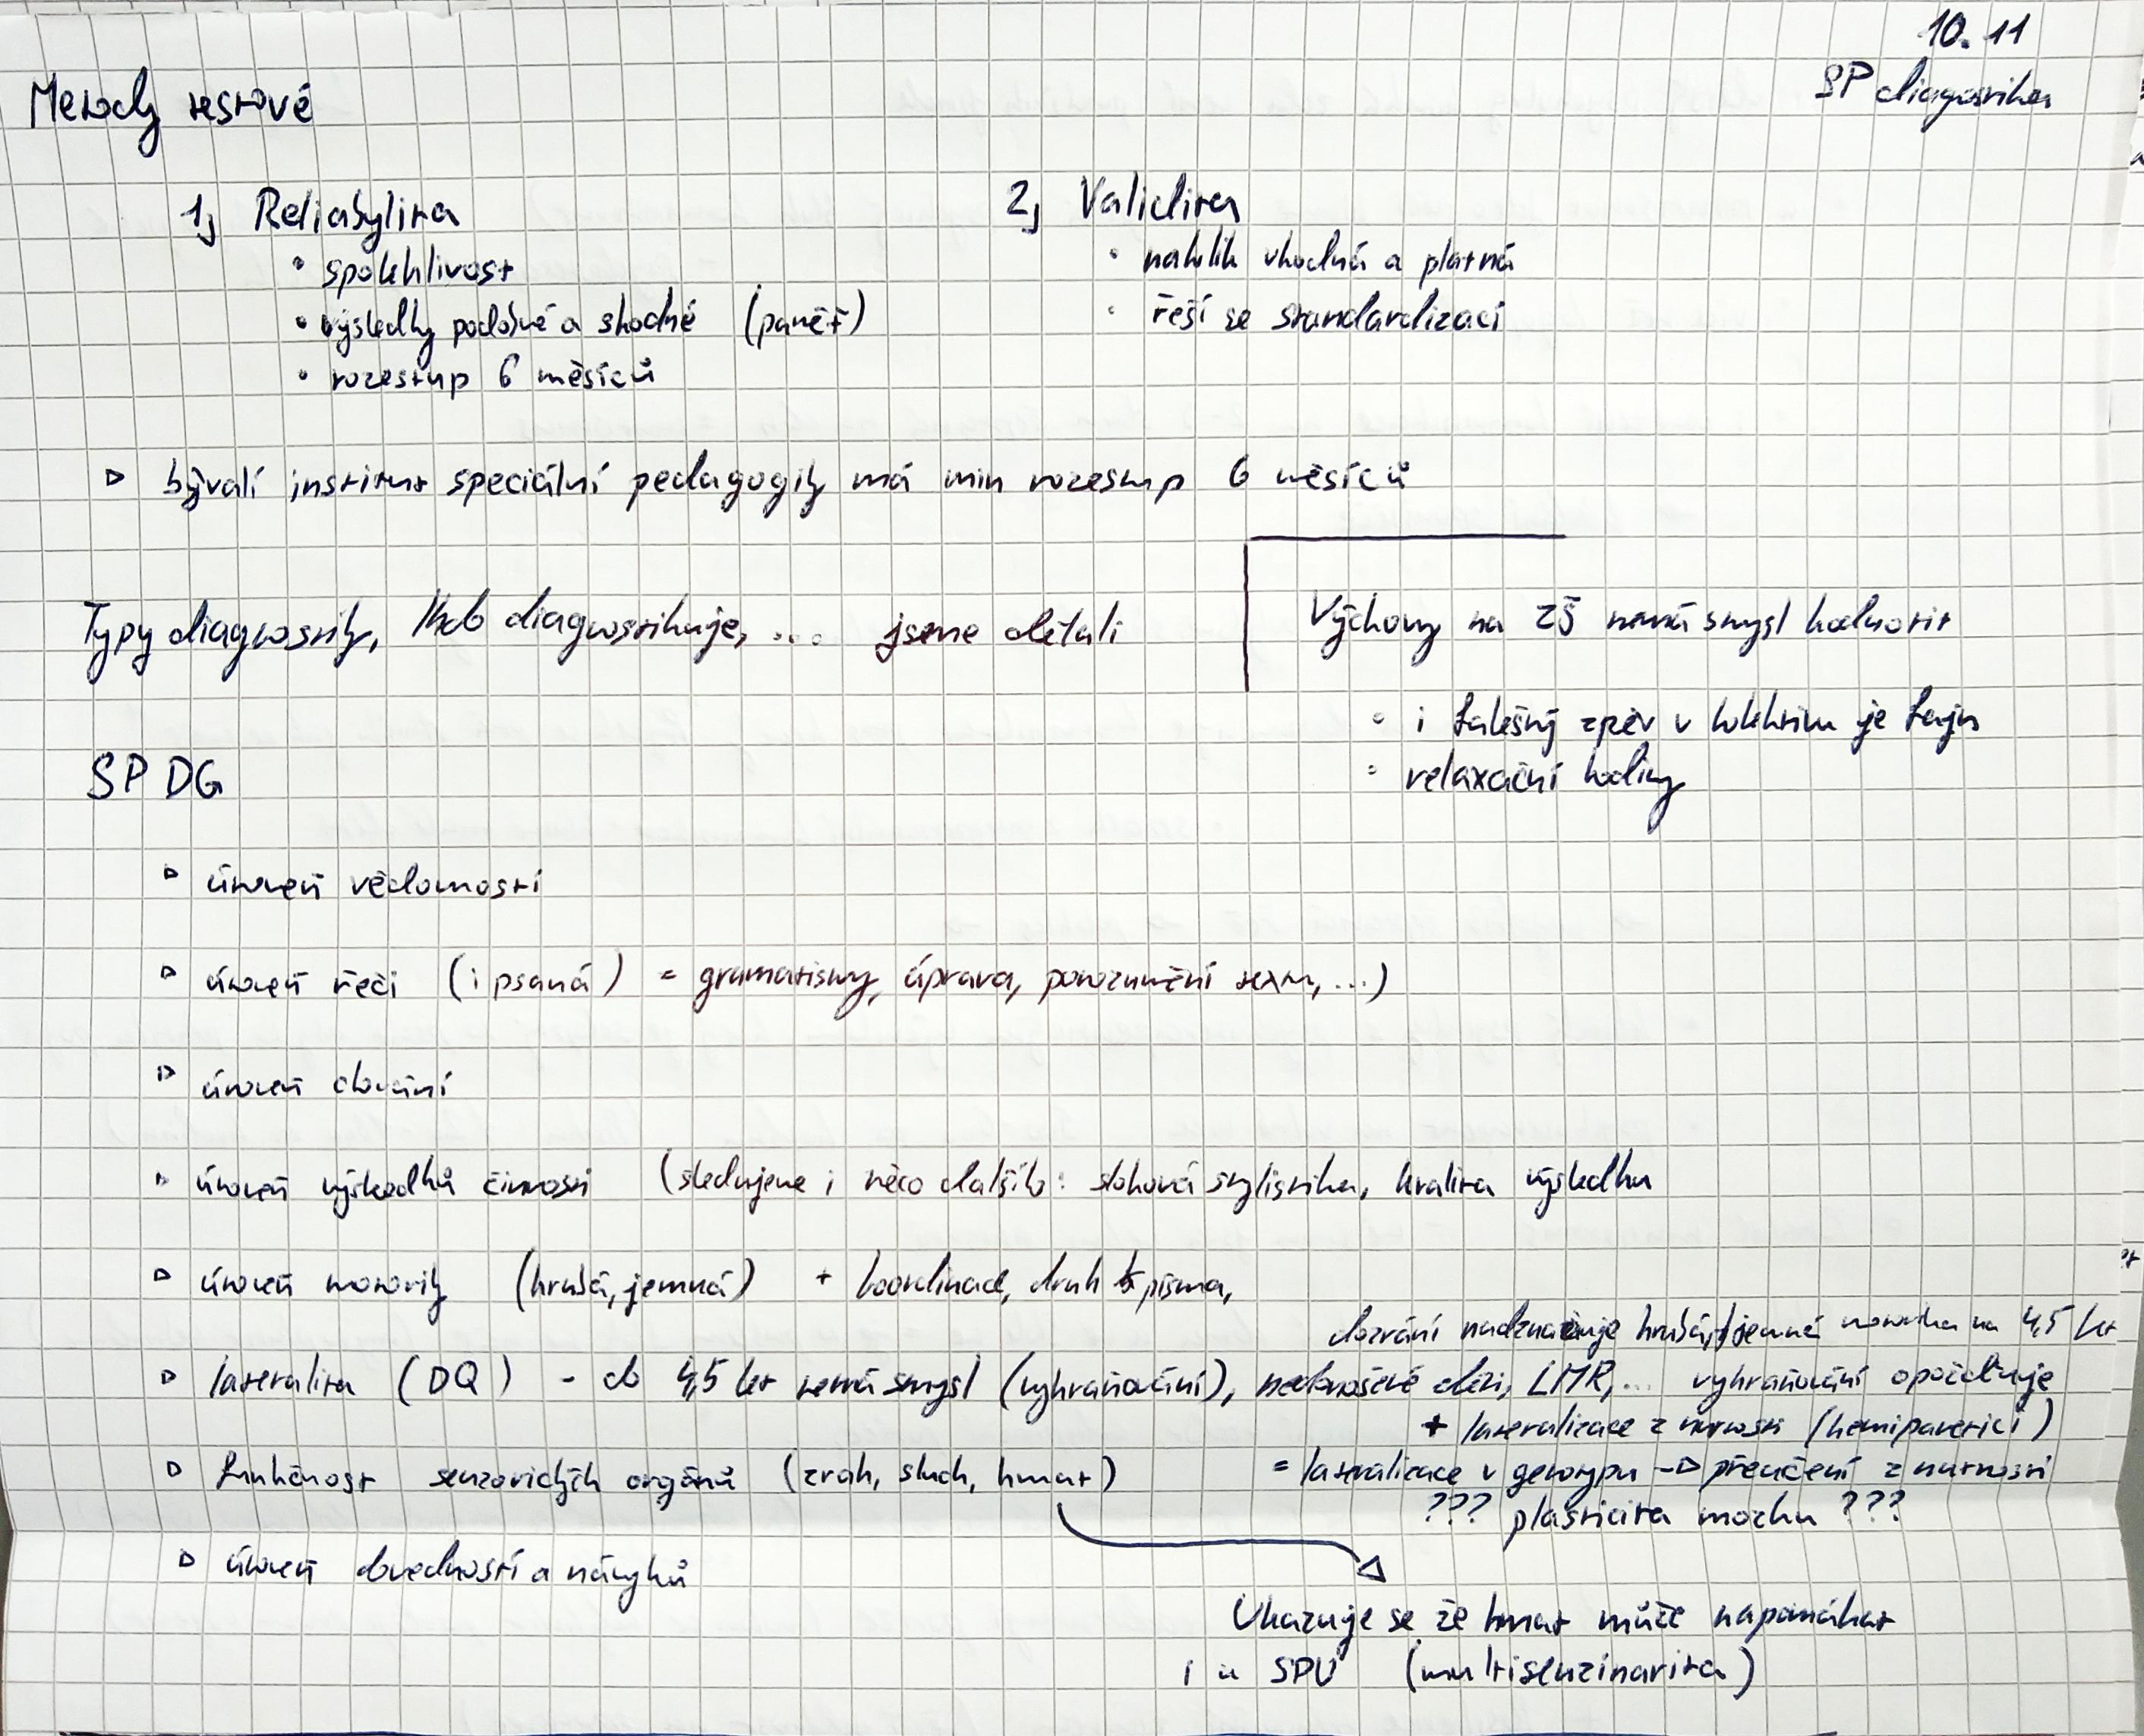 10.11
SP diagnostika
Metody testové
1, Reliabylita
• spolehlivost
• výsledky podobné a shodné (paměť)
• rozestup 6 měsíců
2, Validita
• nakolik vhodná a platná
• řeší se standardizací
▷ bývalí institut speciální pedagogiky má min rozestup 6 měsíců
Typy diagnostiky, Kdo diagnostikuje, .... jsme dělali
Výchovy na ZŠ nemá smysl hodnotit
• i falešný zpěv v kolektivu je fajn
• relaxační hodiny
SP DG
▷ úroveň vědomostí
▷ úroveň řeči (i psaná) = gramatismy, úprava, porozumění textu, ...)
▷ úroveň chování
▷ úroveň výsledků činnosti (sledujeme i něco dalšího: slohová stylistika, kvalita výsledku
▷ úroveň motoriky (hrubá, jemná) + koordinace, druh písma,
dozrání nadznačuje hrubá, jemná motorika na 4,5 let
▷ lateralita (DQ) - do 4,5 let nemá smysl (vyhraňování), nedonošené děti, LMR, ... vyhraňování opožďuje
+ lateralizace z nutnosti (hemiparetici)
= lateralizace v genotypu → přeučení z nutnosti
??? plasticita mozku ???
▷ funkčnost senzorických orgánů (zrak, sluch, hmat)
▷ úroveň dovedností a návyků
Ukazuje se že hmat může napomáhat
i u SPU (multisenzinarita)